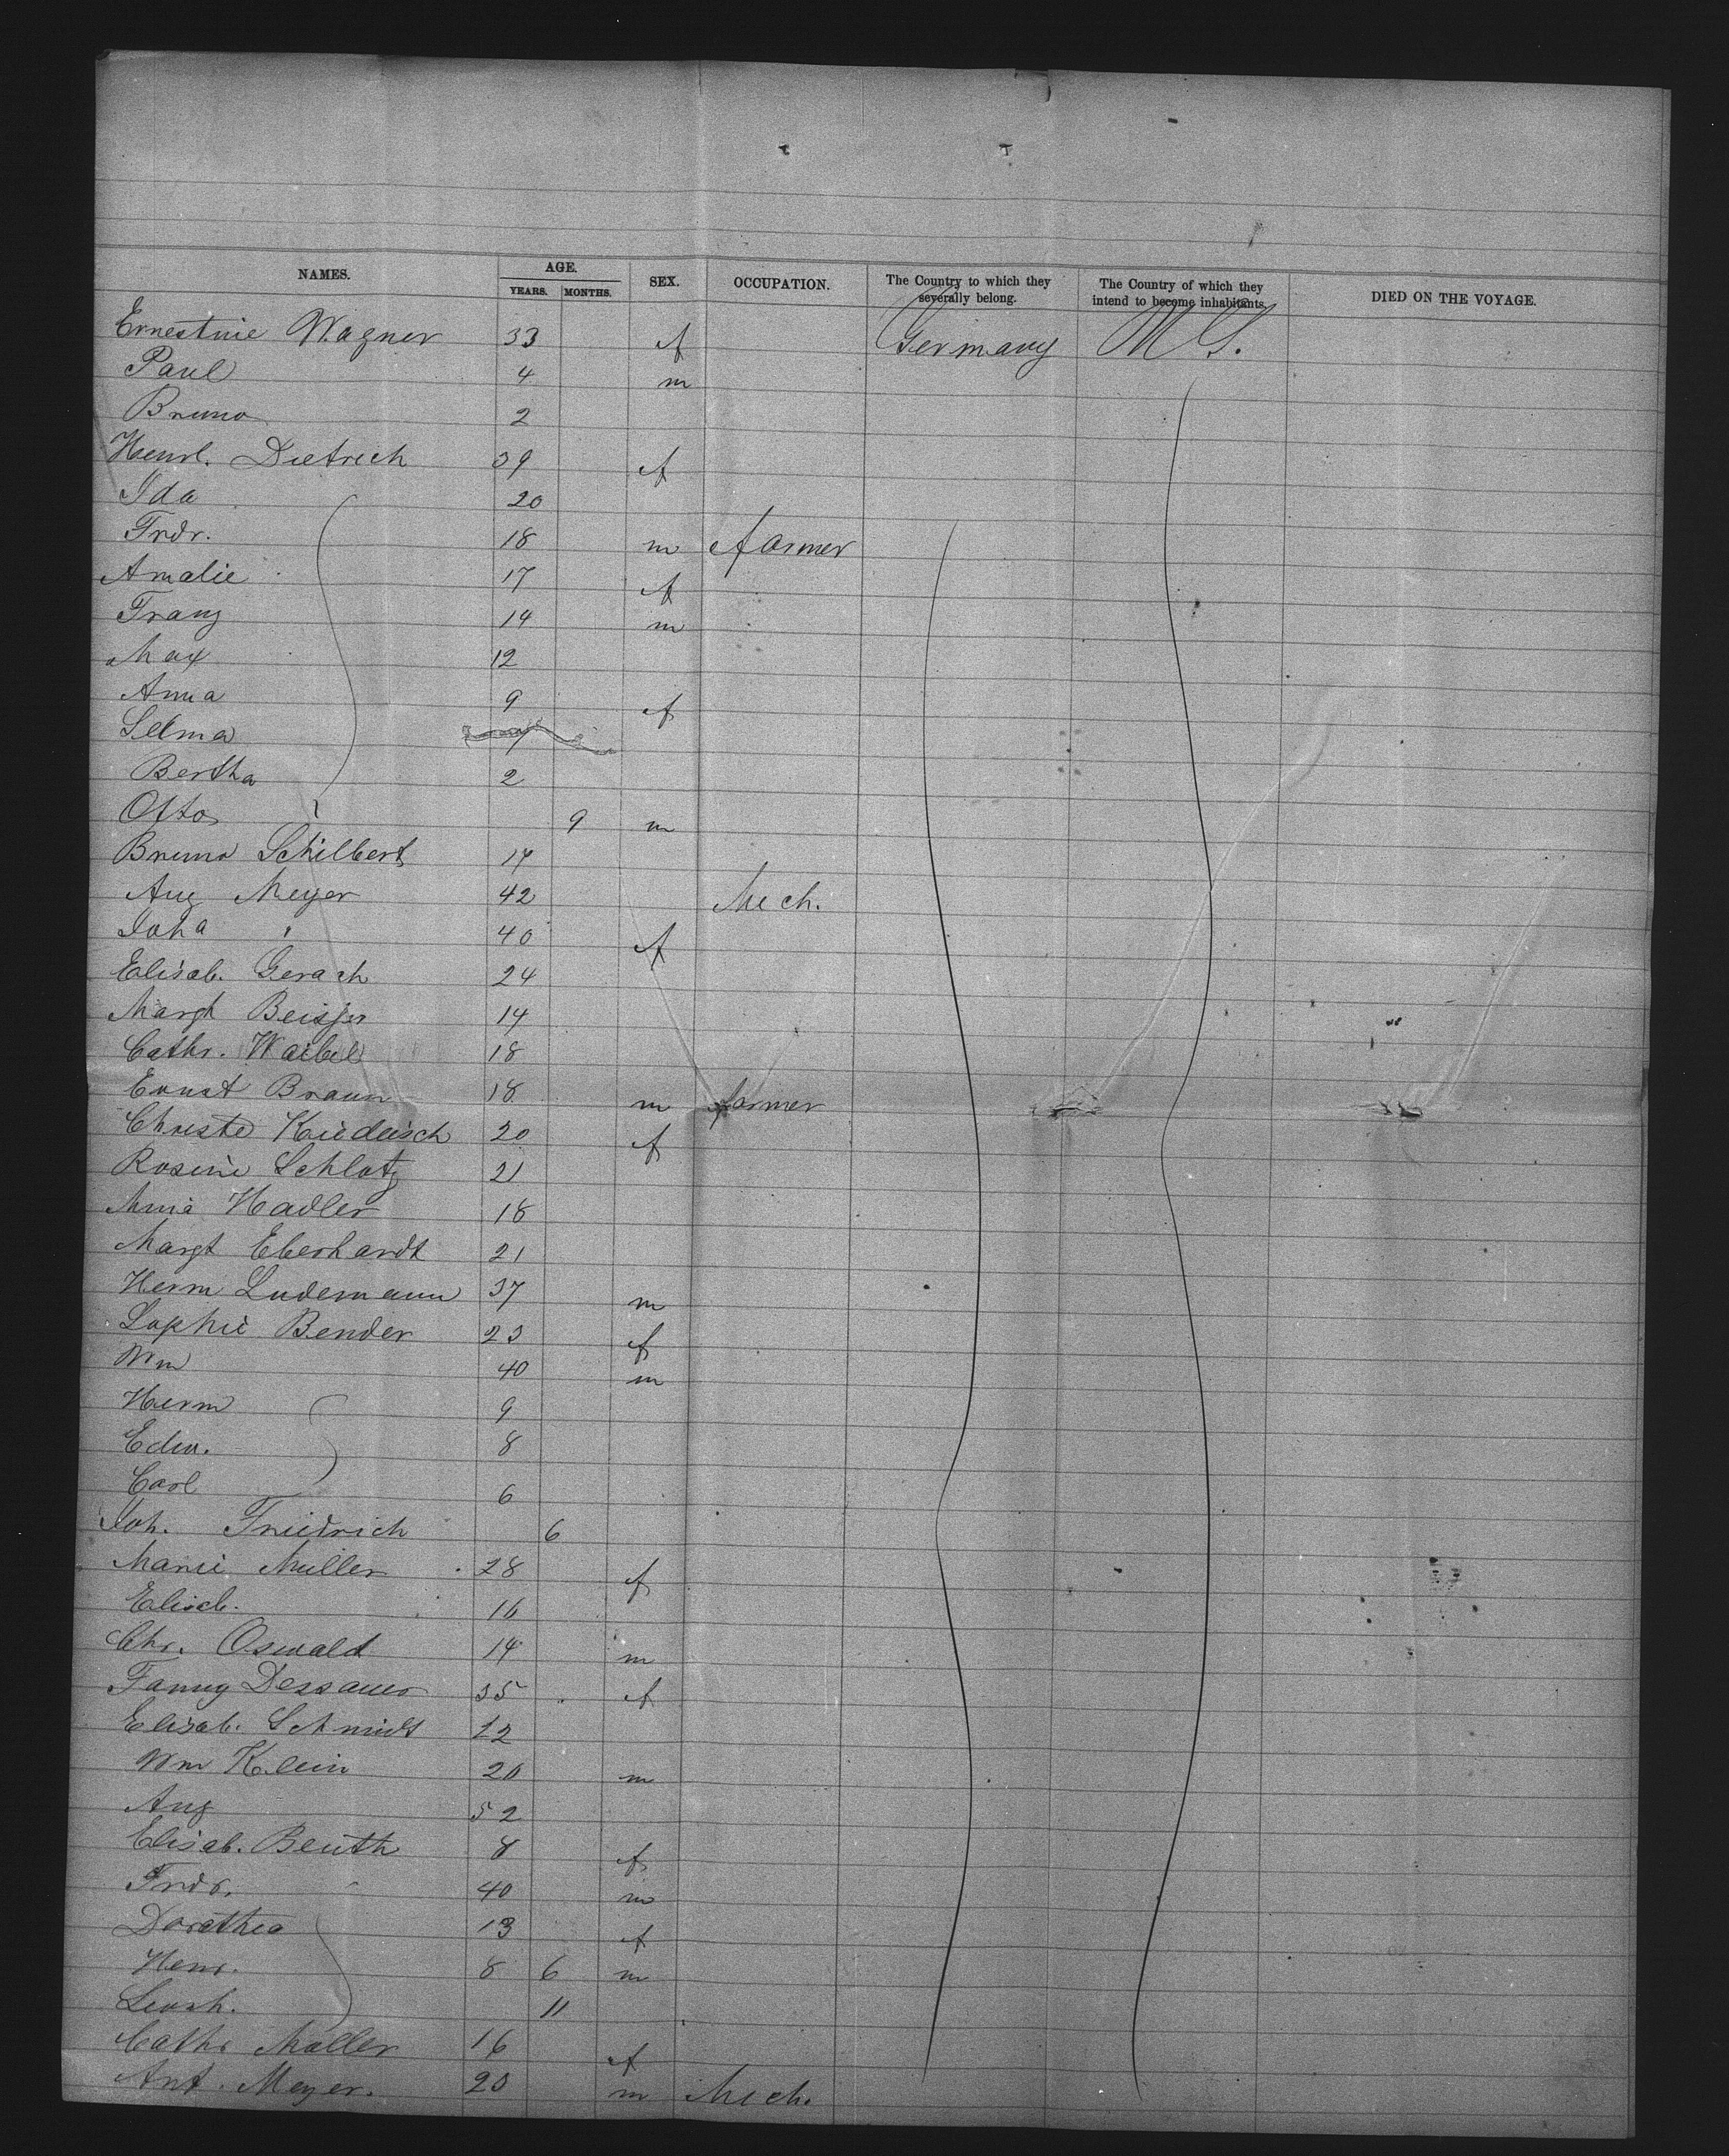 NAMES. AGE. SEX. OCCUPATION. The Country to which they severally belong. The Country of which they intend to become inhabitants. DIED ON THE VOYAGE.
YEARS. MONTHS.
Ernestine Wagner 33 f Germany U S.
Paul 4 m
Bruno 2
Henrl. Dietrich 39 f
Ida 20
Frdr. 18 m farmer
Amalie 17 f
Franz 14 m
Max 12
Anna 9 f
Selma
Bertha 2
Otto 9 m
Bruno Schilbert 14
Aug Meyer 42 Mech.
Joha " 40 f
Elisab. Gerach 24
Margt Beisser 14
Cathr. Waibel 18
Ernst Braun 18 m farmer
Christe Kiedaisch 20 f
Rosine Schlotz 21
Anna Hadler 18
Margt Eberhardt 21
Herm Ludemann 37 m
Sophie Bender 23 f
Wm 40 m
Herm 9
Edw. 8
Carl 6
Joh. Friedrich 6
Marie Muller 28 f
Elisab. 16
Chr. Oswald 14 m
Fanny Dessauer 35 f
Elisab. Schmidt 12
Wm Klein 20 m
Aug 52
Elisab. Beuth 8 f
Frdr. 40 m
Dorothea 13 f
Henr. 8 6 m
Leonh. 11
Cathr Moller 16 f
Ant. Meyer. 20 m Mech.